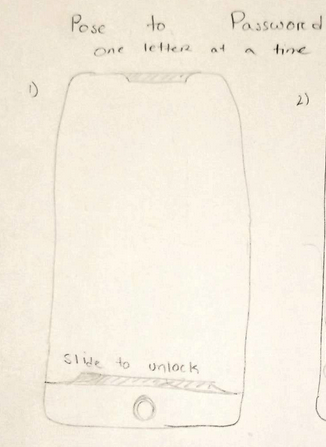 Pose to Password
one letter at a time
1)
2)
Slide to unlock